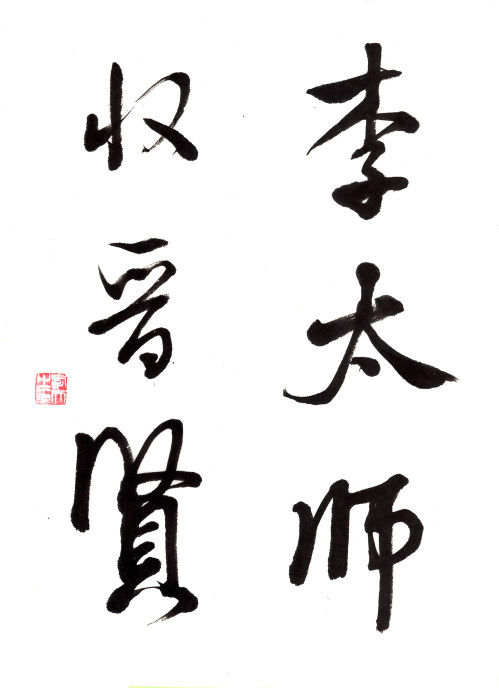 李太师
收晋賢